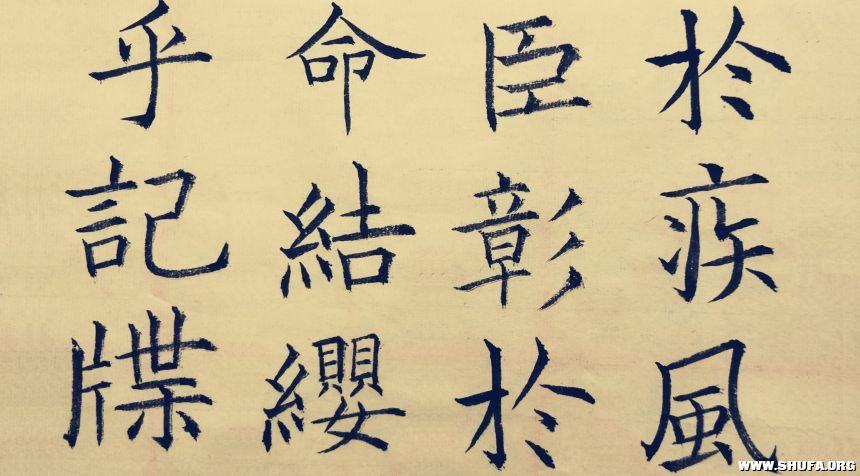 於疾風
臣彰於
命結纓
乎記牒
WWW.SHUFA.ORG